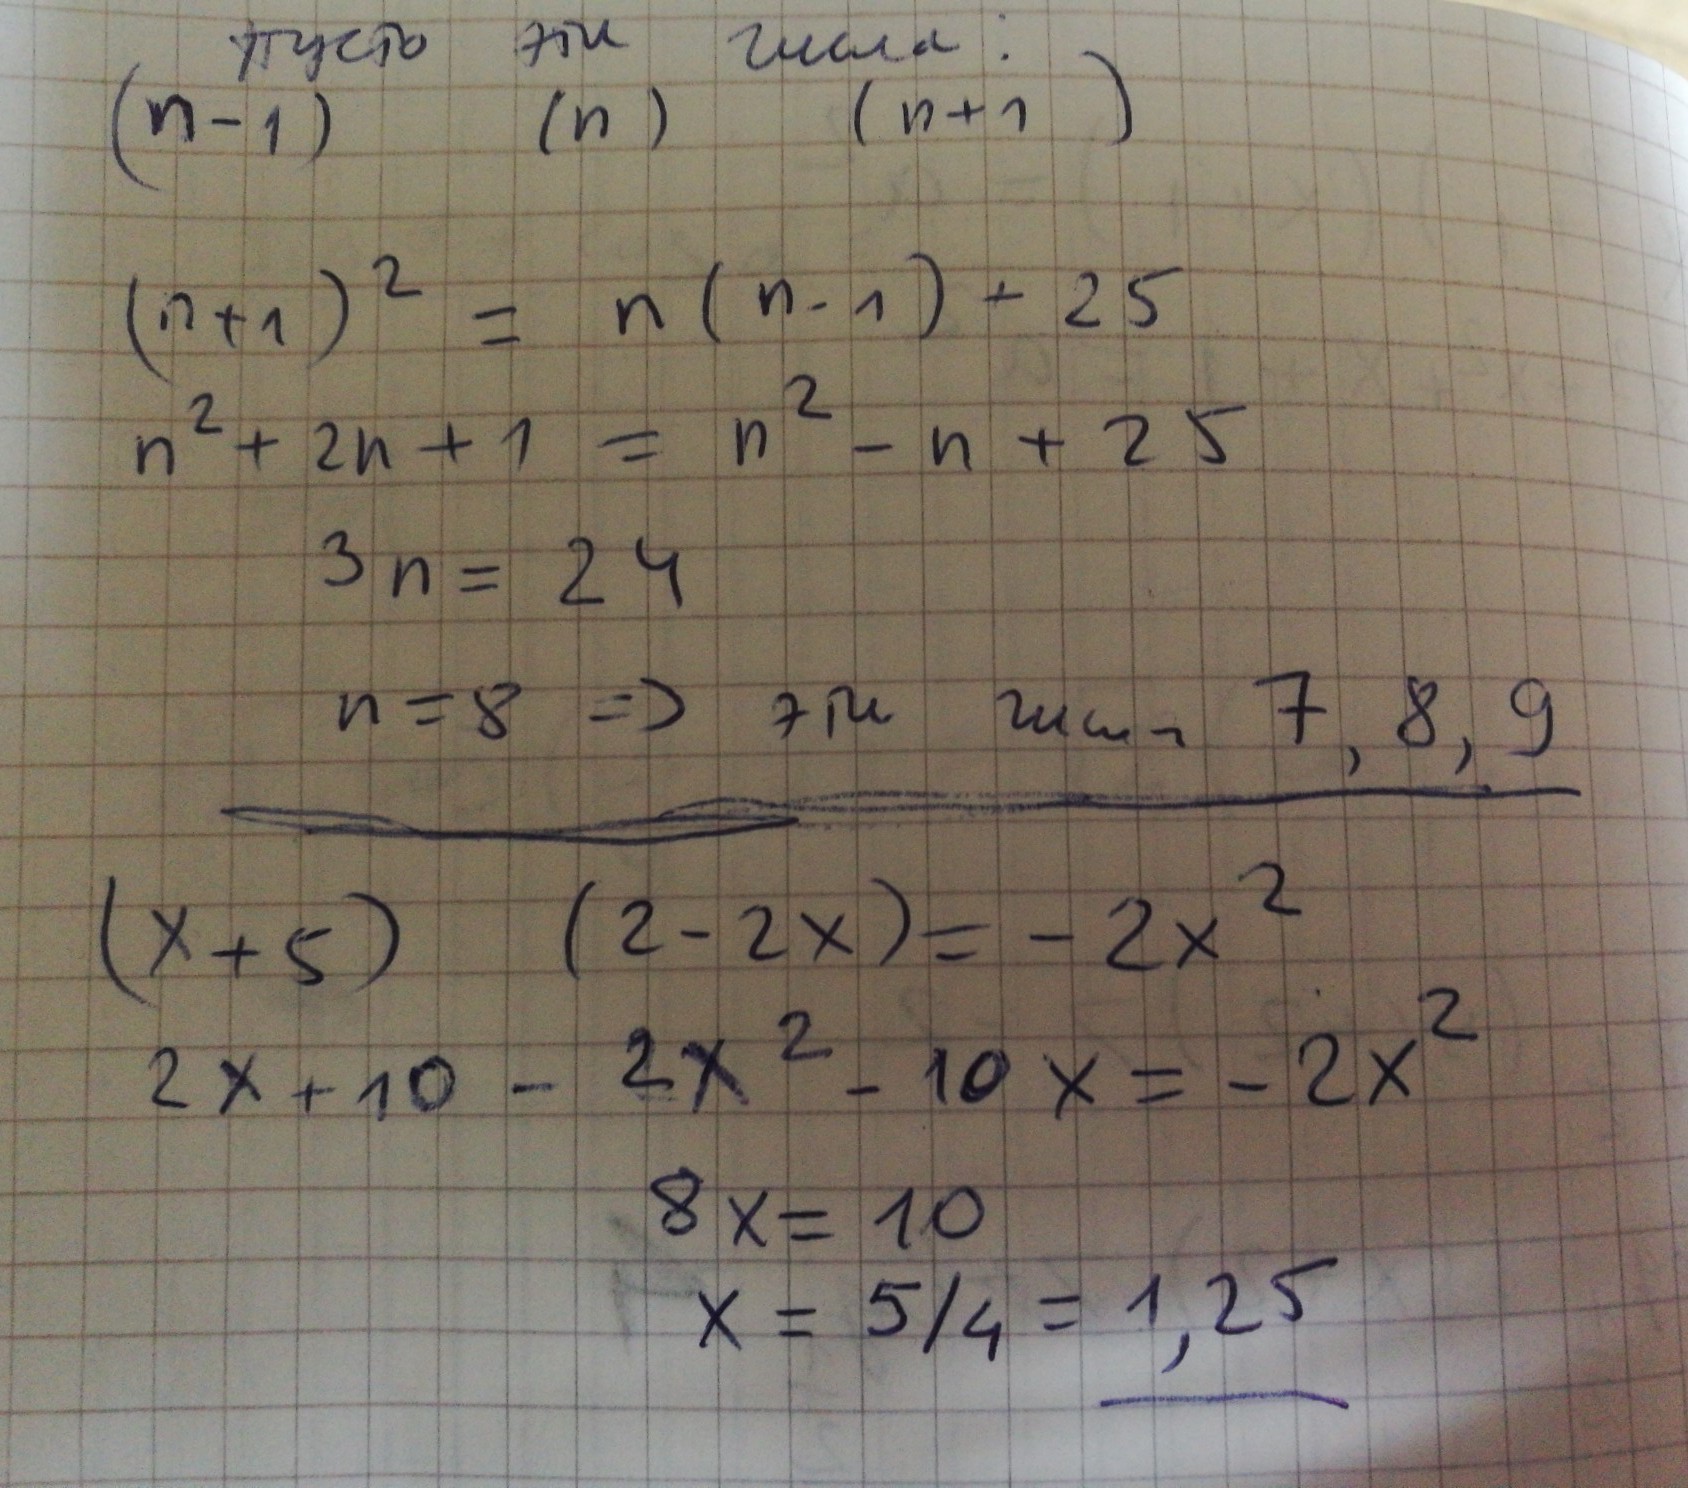 пусть эти числа:
(n-1) (n) (n+1)
(n+1)² = n(n-1) + 25
n² + 2n + 1 = n² - n + 25
3n = 24
n = 8 => эти числа 7, 8, 9
(x+5) (2-2x) = -2x²
2x + 10 - 2x² - 10x = -2x²
8x = 10
x = 5/4 = 1,25